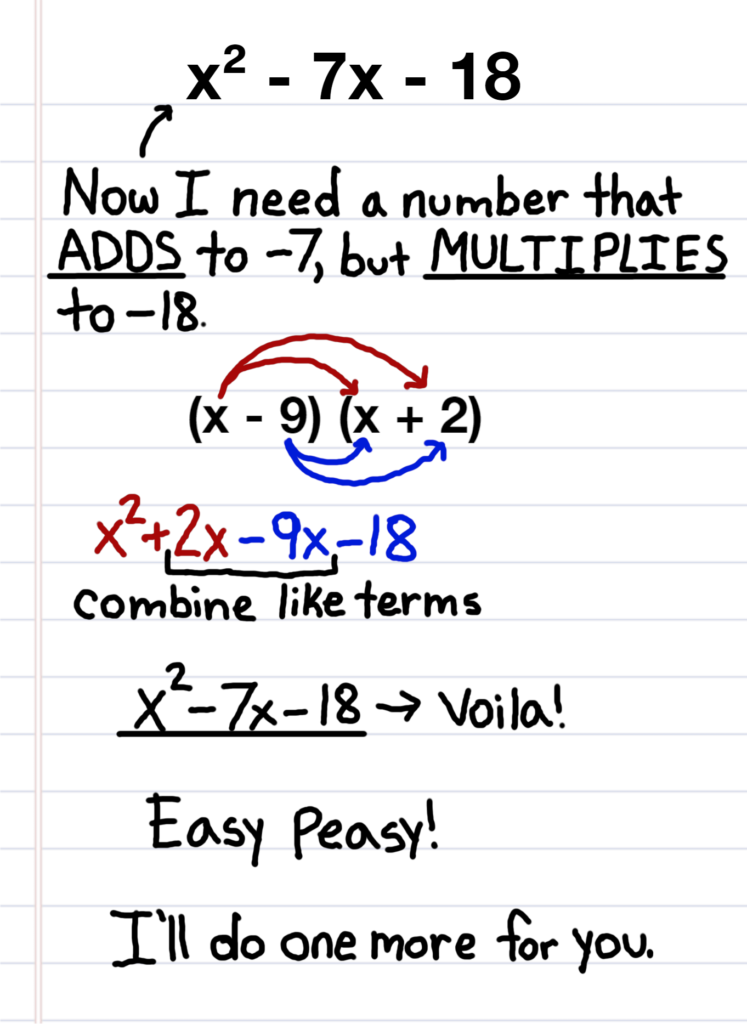 x² - 7x - 18
Now I need a number that
ADDS to -7, but MULTIPLIES
to -18.
(x - 9) (x + 2)
x²+2x-9x-18
combine like terms
x²-7x-18 → Voila!
Easy Peasy!
I'll do one more for you.